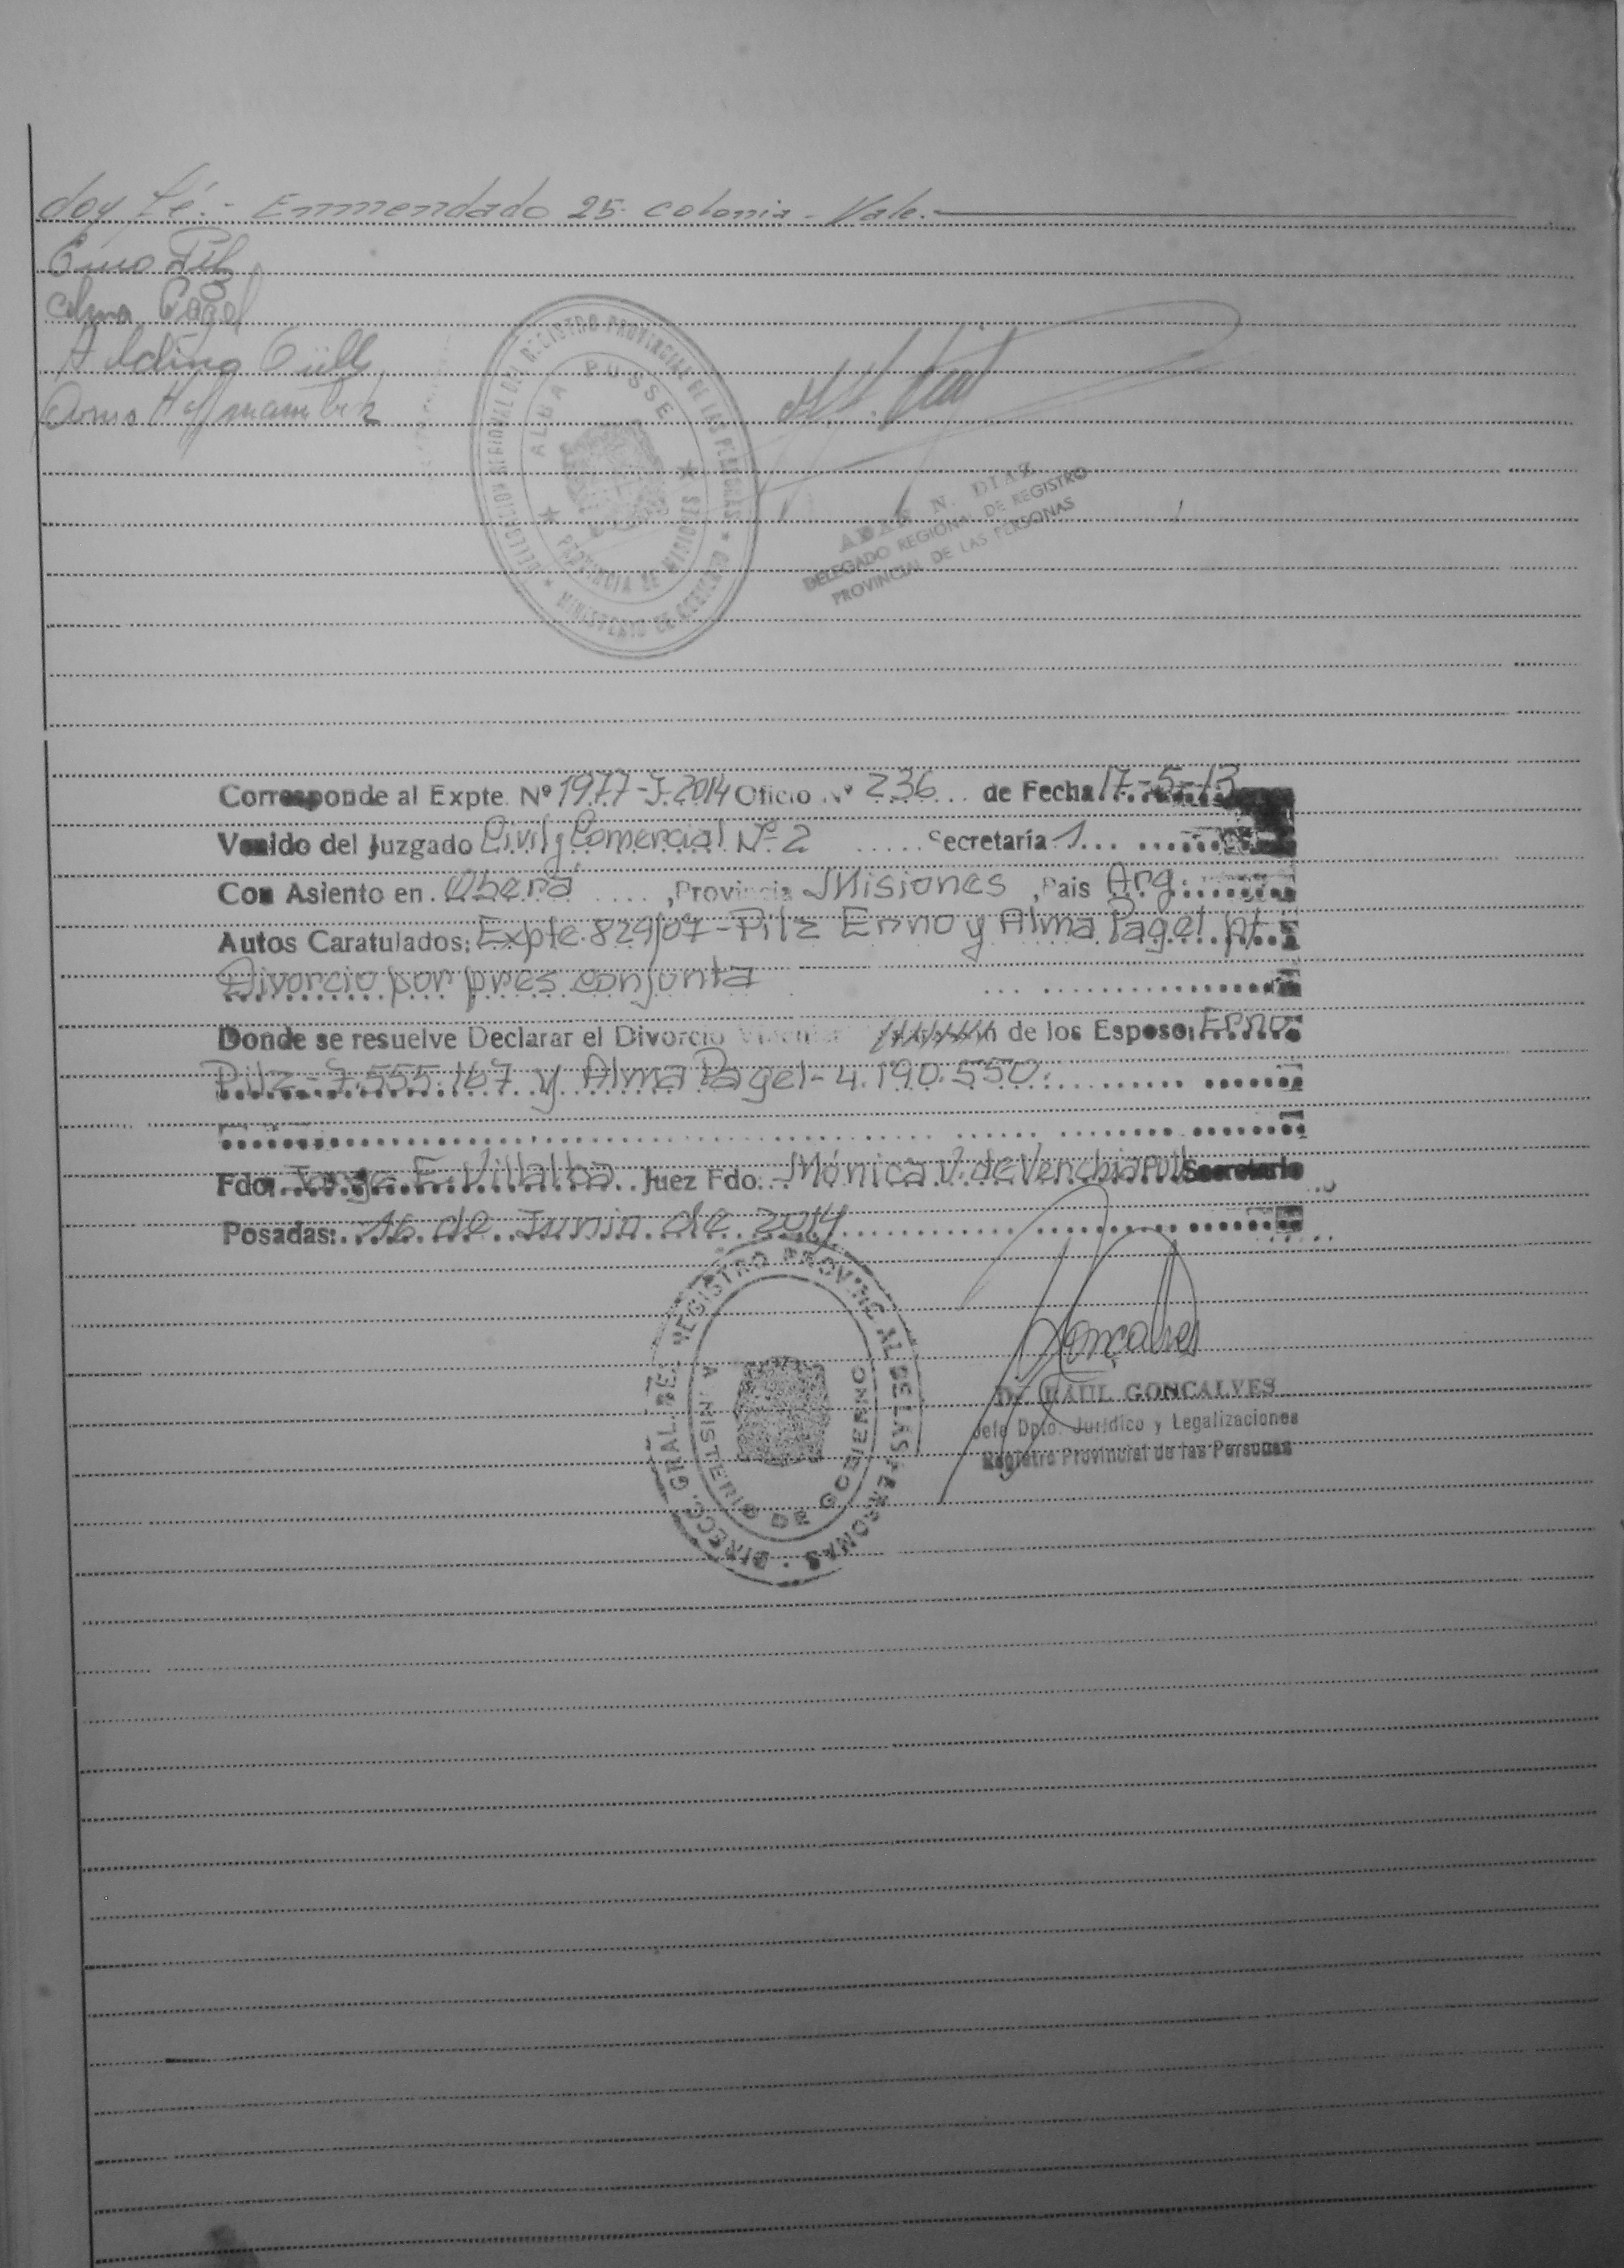 doy fé.- Enmendado 25. colonia - Vale.-
Erno Pilz
Alma Pagel
DELEGACION REGIONAL DEL REGISTRO PROVINCIAL DE LAS PERSONAS * MINISTERIO DE GOBIERNO *
ALBA POSSE
PROVINCIA DE MISIONES
ADAN N. DIAZ
DELEGADO REGIONAL DE REGISTRO
PROVINCIAL DE LAS PERSONAS
Corresponde al Expte. Nº 1977-J-2014 Oficio Nº 236 de Fecha 17-5-13
Venido del Juzgado Civil y Comercial Nº 2 Secretaría 1
Con Asiento en Oberá, Provincia Misiones, Pais Arg.
Autos Caratulados: Expte. 829/07 - Pilz Erno y Alma Pagel s/
Divorcio por pres conjunta
Donde se resuelve Declarar el Divorcio Vincular de los Esposos Erno
Pilz - 7.555.167 y Alma Pagel - 4.190.550.
Fdo. Jorge E. Villalba Juez Fdo. Mónica V. de Venchiarutti Secretario
Posadas: 16 de Junio de 2014
DIRECC. GRAL. DEL REGISTRO PROVINCIAL DE LAS PERSONAS
MINISTERIO DE GOBIERNO
Goncalves
Dr. RAUL GONCALVES
Jefe Dpto. Jurídico y Legalizaciones
Registro Provincial de las Personas